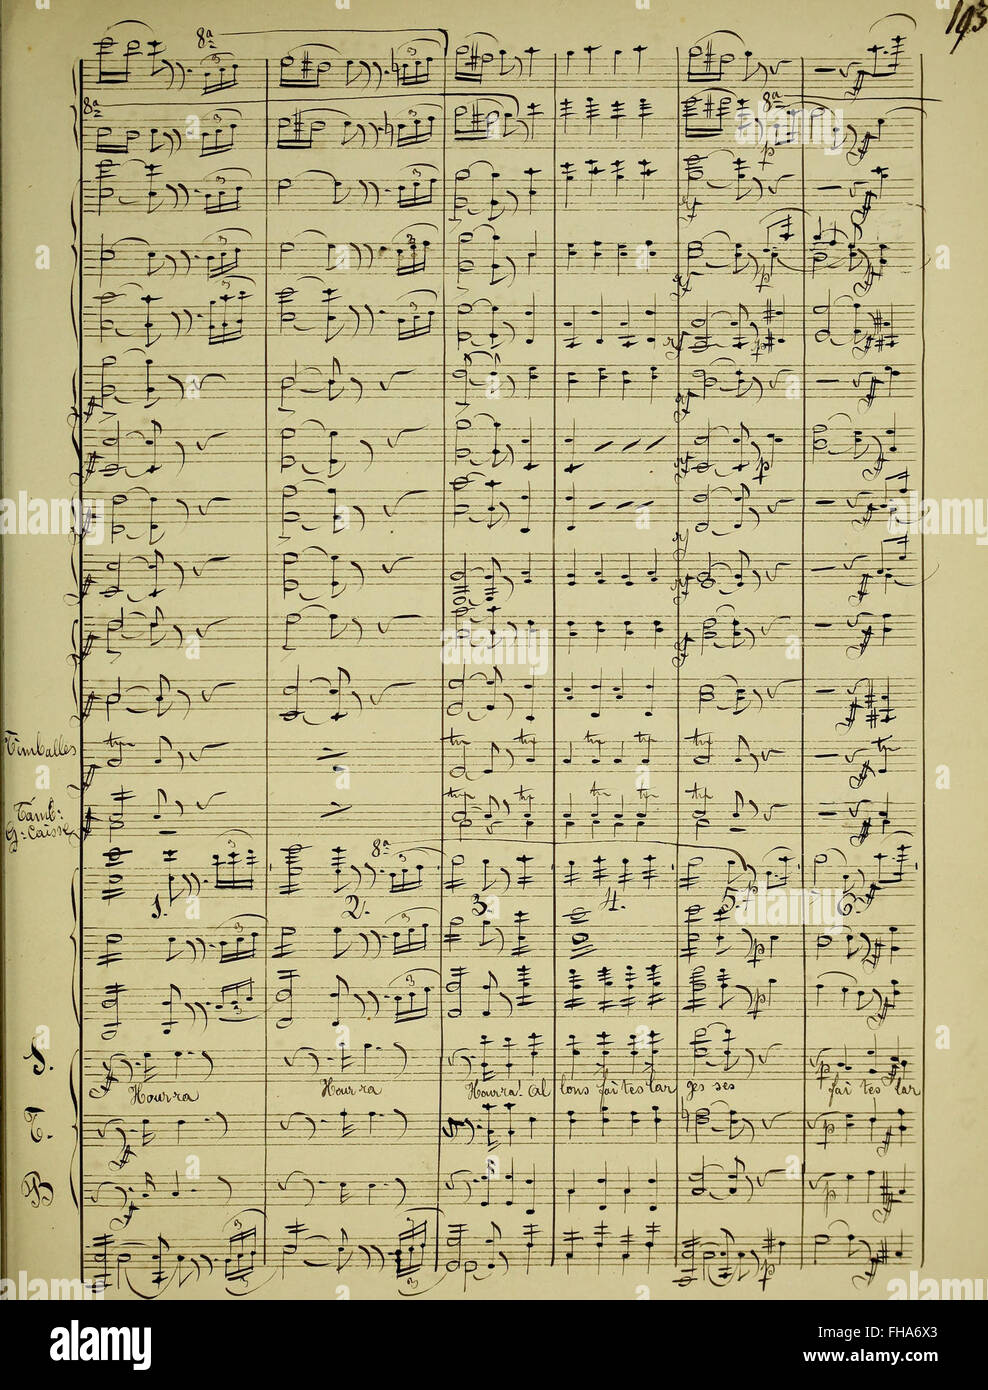 193
8ª
8ª
8ª
Timballes
Tamb:
G: Caisse
8ª
1. 2. 3. 4. 5. 6.
S.
Hourra Hourra Hourra! Al lons fai tes lar ges ses fai tes lar
T.
B
alamy
Image ID: FHA6X3
www.alamy.com